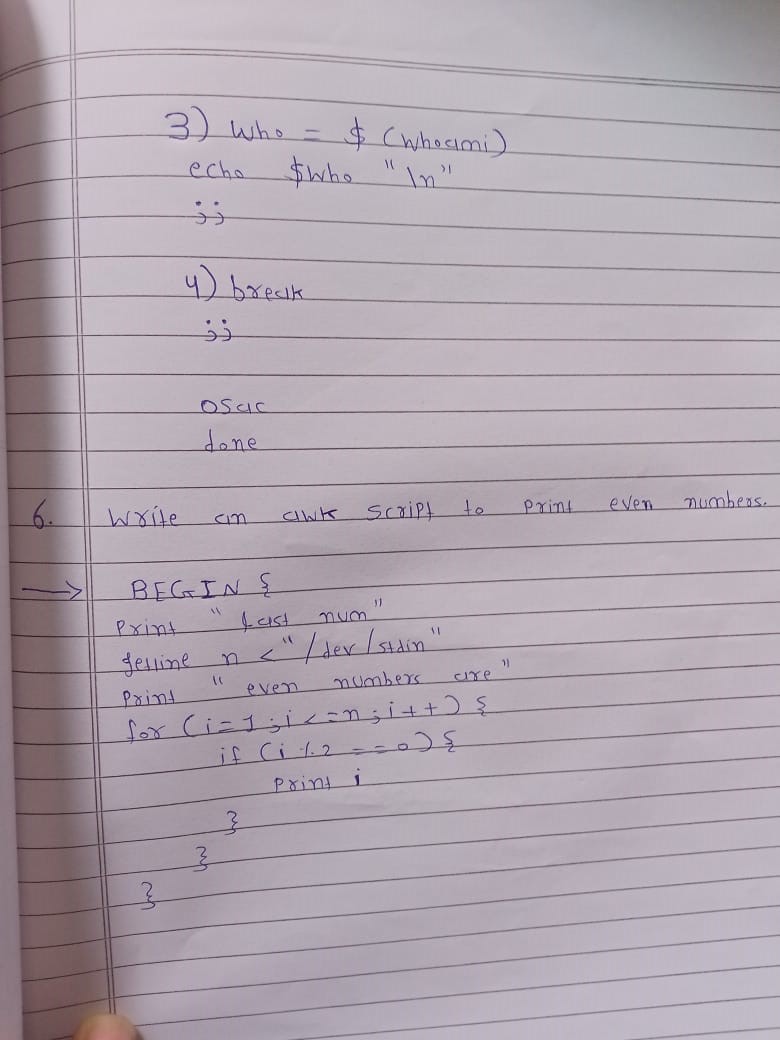 3) Who = $ (whoami)
echo $who "\n"
;;
4) break
;;
osac
done
6. Write an awk script to print even numbers.
→ BEGIN {
Print " Last num"
getline n <"/dev/stdin"
Print " even numbers are"
for (i=1;i<=n;i++) {
if (i % 2 ==0) {
Print i
}
}
}